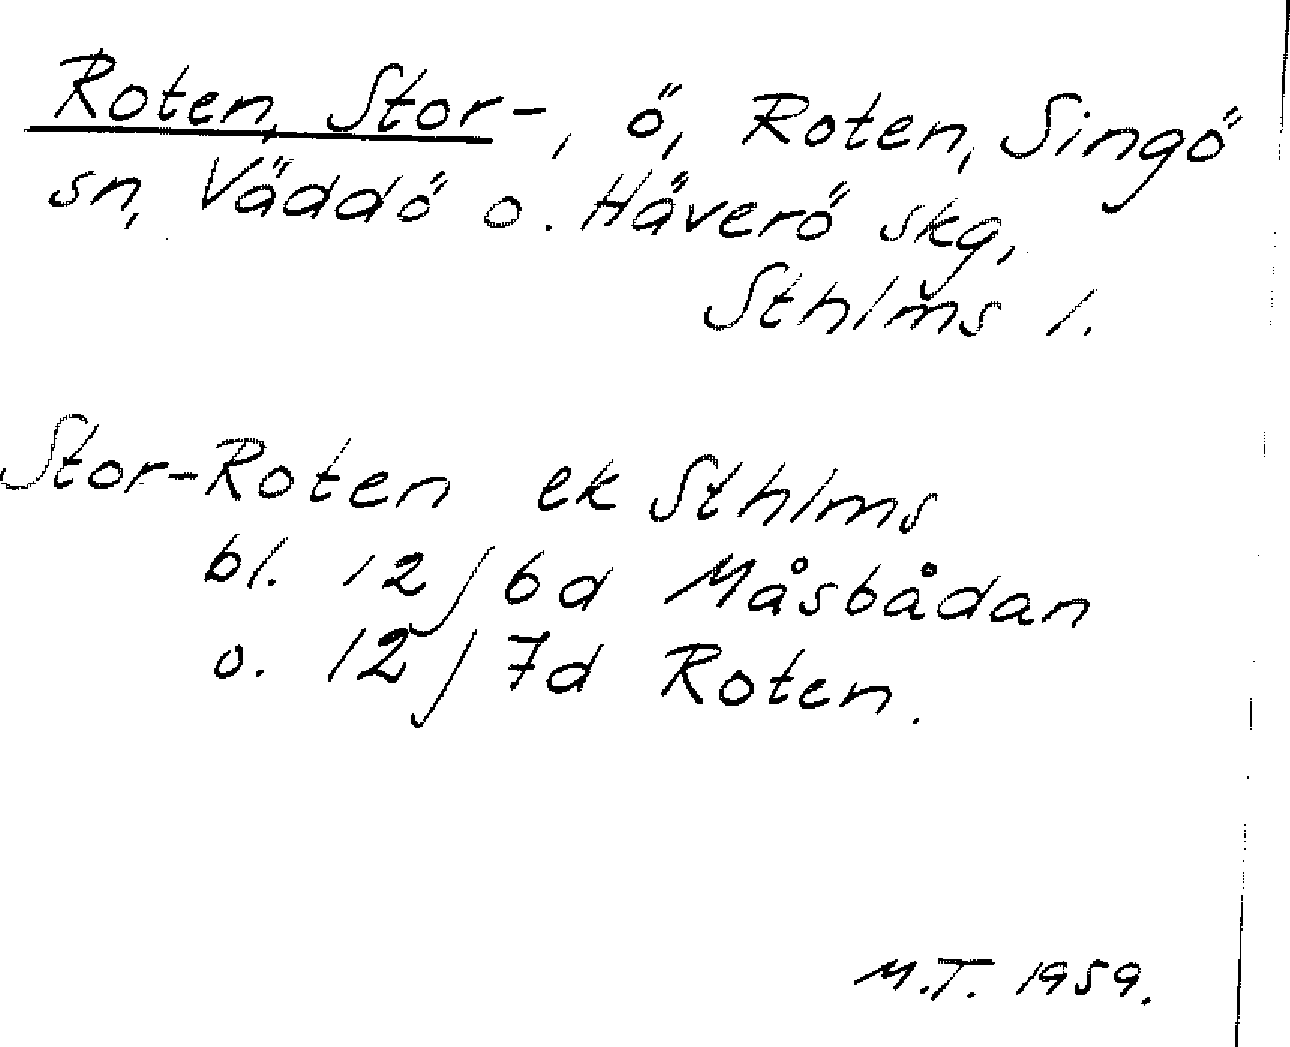 Roten, Stor-, ö, Roten, Singö
sn, Väddö o. Häverö skg,
Sthlms l.
Stor-Roten ek Sthlms
bl. 12j 6d Måsbådan
o. 12j 7d Roten.
M.T. 1959.